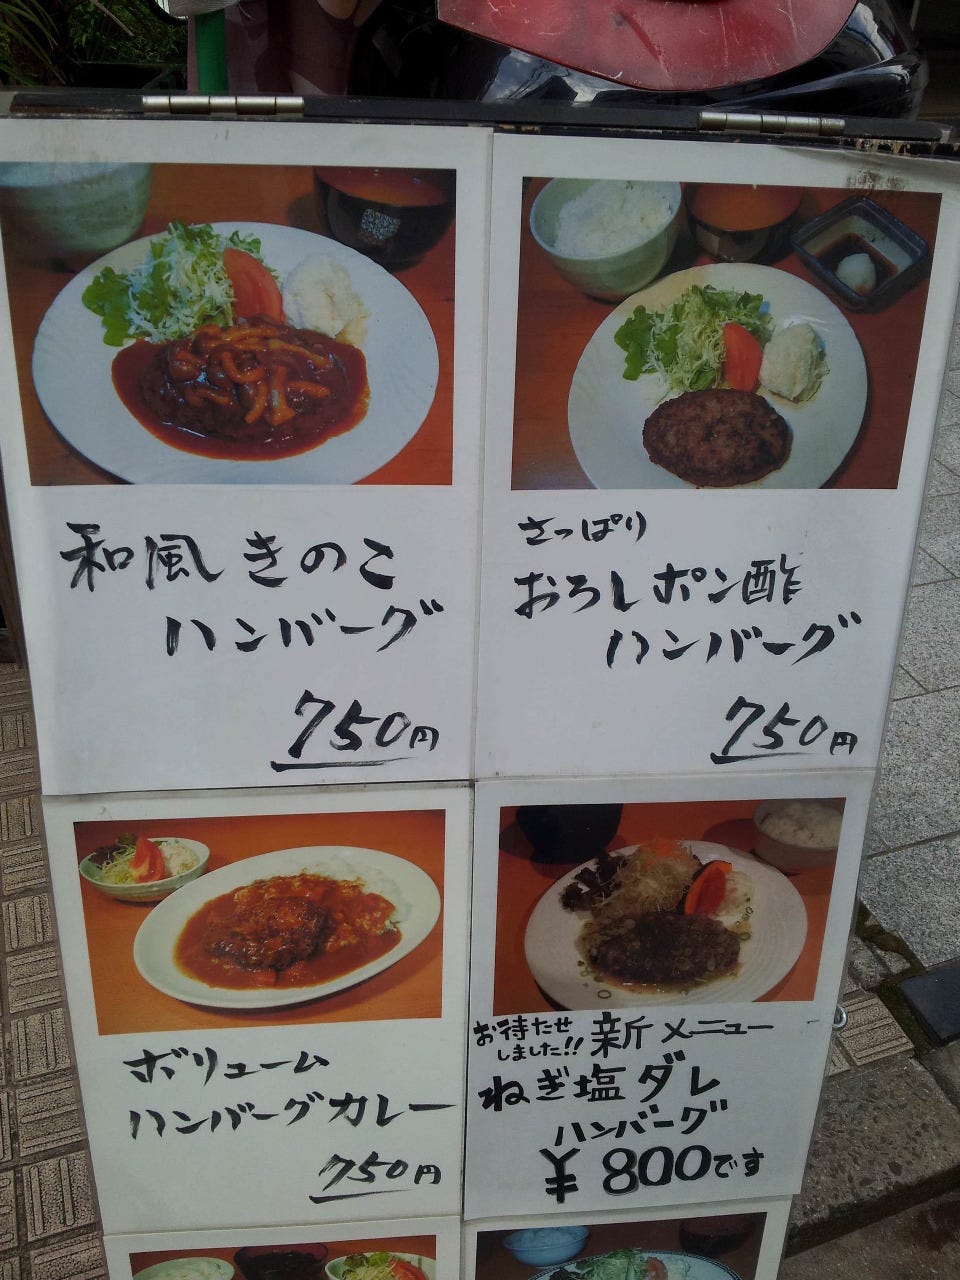 和風きのこ
ハンバーグ
750円
さっぱり
おろしポン酢
ハンバーグ
750円
ボリューム
ハンバーグカレー
750円
お待たせ
しました!! 新メニュー
ねぎ塩ダレ
ハンバーグ
¥800です